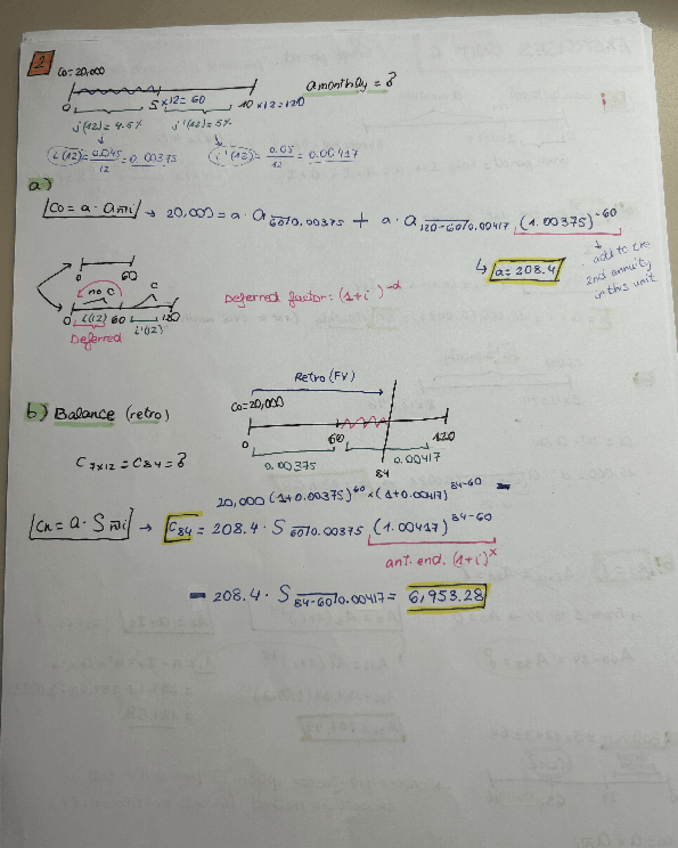 2
Co = 20,000
a monthly = ?
0 5 x12 = 60 10 x12 = 120
j(12) = 4.5% j'(12) = 5%
i(12) = 0.045/12 = 0.00375 i'(12) = 0.05/12 = 0.00417
a)
Co = a · a n̅|i → 20,000 = a · a 60̅|0.00375 + a · a 120-60̅|0.00417 · (1.00375)^-60
↳ a = 208.4
add to the
2nd annuity
in this unit
0 60
no C C
0 i(12) 60 i'(12) 120
Deferred
Deferred factor: (1+i)^-d
Retro (FV)
b) Balance (retro)
Co = 20,000
0 60 84 120
0.00375 0.00417
C 7x12 = C84 = ?
20,000 (1+0.00375)^60 x (1+0.00417)^84-60 -
Cn = a · S n̅|i → C84 = 208.4 · S 60̅|0.00375 (1.00417)^84-60
ant. end. (1+i)^x
- 208.4 · S 84-60̅|0.00417 = 6,953.28